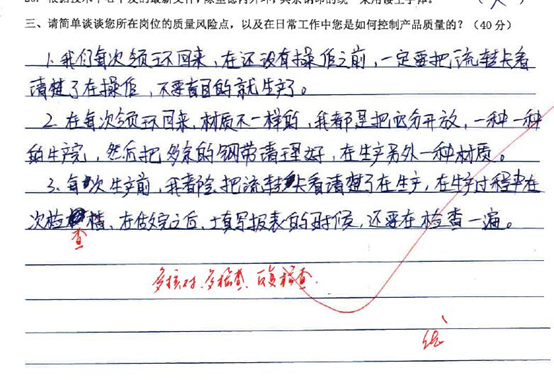 三、请简单谈谈您所在岗位的质量风险点,以及在日常工作中您是如何控制产品质量的?(40分)
1.我们每次领环回来,在还没有操作之前,一定要把流转卡看
清楚了在操作,不要盲目的就生产了。
2.在每次领环回来,材质不一样的,我都是把它分开放,一种一种
的生产完,然后把多余的钢带清理好,在生产另外一种材质。
3.每次生产前,我都会把流转卡看清楚了在生产,在生产过程中在
次检查,在做完之后,填写报表的时候,还要在检查一遍。
多核对,多检查,反复检查.